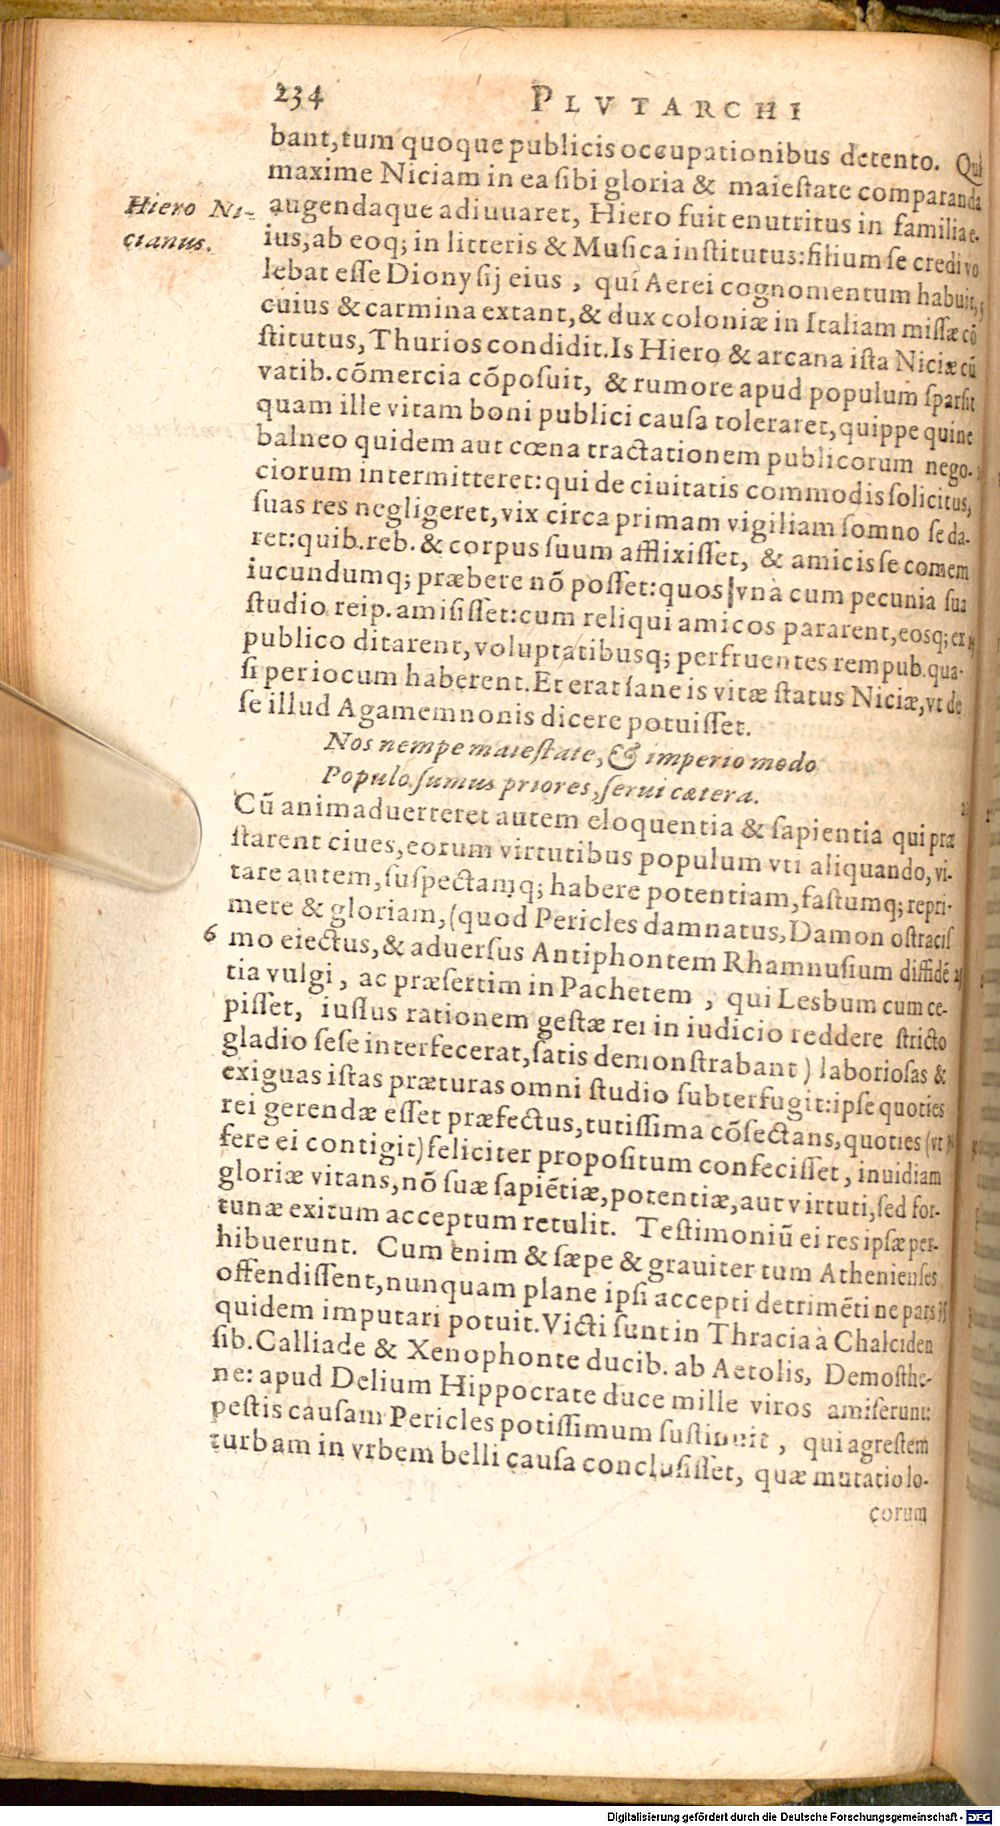 234 PLVTARCHI
bant, tum quoque publicis occupationibus detento. Qui
maxime Niciam in ea sibi gloria & maiestate comparanda
Hiero Ni-
cianus.
augendaque adiuuaret, Hiero fuit enutritus in familia e-
ius, ab eoq; in litteris & Musica institutus: filium se credi vo
lebat esse Dionysij eius, qui Aerei cognomentum habuit,
cuius & carmina extant, & dux coloniæ in Italiam missæ cō
stitutus, Thurios condidit. Is Hiero & arcana ista Niciæ cū
vatib. cōmercia cōposuit, & rumore apud populum sparsit
quam ille vitam boni publici causa toleraret, quippe qui ne
balneo quidem aut cœna tractationem publicorum nego-
ciorum intermitteret: qui de ciuitatis commodis solicitus,
suas res negligeret, vix circa primam vigiliam somno se da-
ret: quib. reb. & corpus suum afflixisset, & amicis se comem
iucundumq; præbere nō posset: quos vnà cum pecunia sua
studio reip. amisisset: cum reliqui amicos pararent, eosq; ex
publico ditarent, voluptatibusq; perfruentes rempub. qua-
si per iocum haberent. Et erat sane is vitæ status Niciæ, vt de
se illud Agamemnonis dicere potuisset.
Nos nempe maiestate, & imperio modo
Populo sumus priores, serui cætera.
Cū animaduerteret autem eloquentia & sapientia qui præ
starent ciues, eorum virtutibus populum vti aliquando, vi-
tare autem, suspectamq; habere potentiam, fastumq; repri-
mere & gloriam, (quod Pericles damnatus, Damon ostracis
6 mo eiectus, & aduersus Antiphontem Rhamnusium diffidē
tia vulgi, ac præsertim in Pachetem, qui Lesbum cum ce-
pisset, iussus rationem gestæ rei in iudicio reddere stricto
gladio sese interfecerat, satis demonstrabant) laboriosas &
exiguas istas præturas omni studio subterfugit: ipse quoties
rei gerendæ esset præfectus, tutissima cōsectans, quoties (vt
fere ei contigit) feliciter propositum confecisset, inuidiam
gloriæ vitans, nō suæ sapiētiæ, potentiæ, aut virtuti, sed for-
tunæ exitum acceptum retulit. Testimoniū ei res ipsæ per-
hibuerunt. Cum enim & sæpe & grauiter tum Athenienses
offendissent, nunquam plane ipsi accepti detrimēti ne pars
quidem imputari potuit. Victi sunt in Thracia à Chalciden
sib. Calliade & Xenophonte ducib. ab Aetolis, Demosthe-
ne: apud Delium Hippocrate duce mille viros amiserunt:
pestis causam Pericles potissimum sustinuit, qui agrestem
turbam in vrbem belli causa conclusisset, quæ mutatio lo-
corum
Digitalisierung gefördert durch die Deutsche Forschungsgemeinschaft - DFG